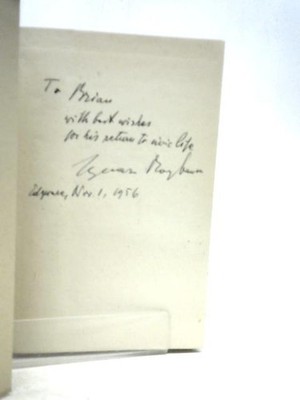 To Brian
with best wishes
for his return to civic life
Nov. 1, 1956